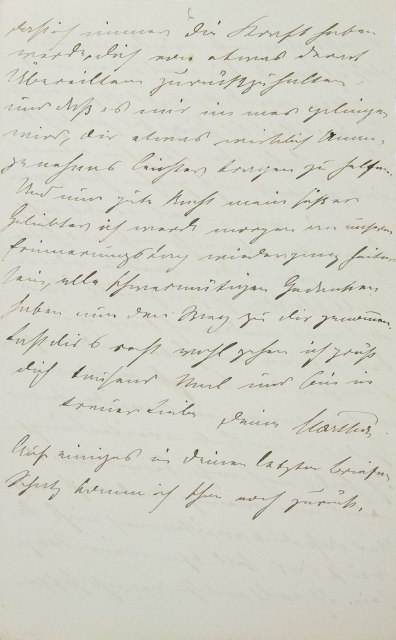 daß ich immer die Kraft haben
werde, dich von etwas derart
Übereiltem zurückzuhalten,
und daß es mir immer gelingen
wird, dir etwas wirklich Unan-
genehmes leichter tragen zu helfen.
Und nun gute Nacht mein süßer
Geliebter, ich werde morgen an unserem
Erinnerungstag wieder ganz heiter
sein, alle schwermütigen Gedanken
haben nun den Weg zu dir genommen.
Laß dir's recht wohl gehen ich grüß
dich tausend Mal und bin in
treuer Liebe deine Martha.
Auf einiges in deinen letzten Briefen
Schatz komm ich schon noch zurück.